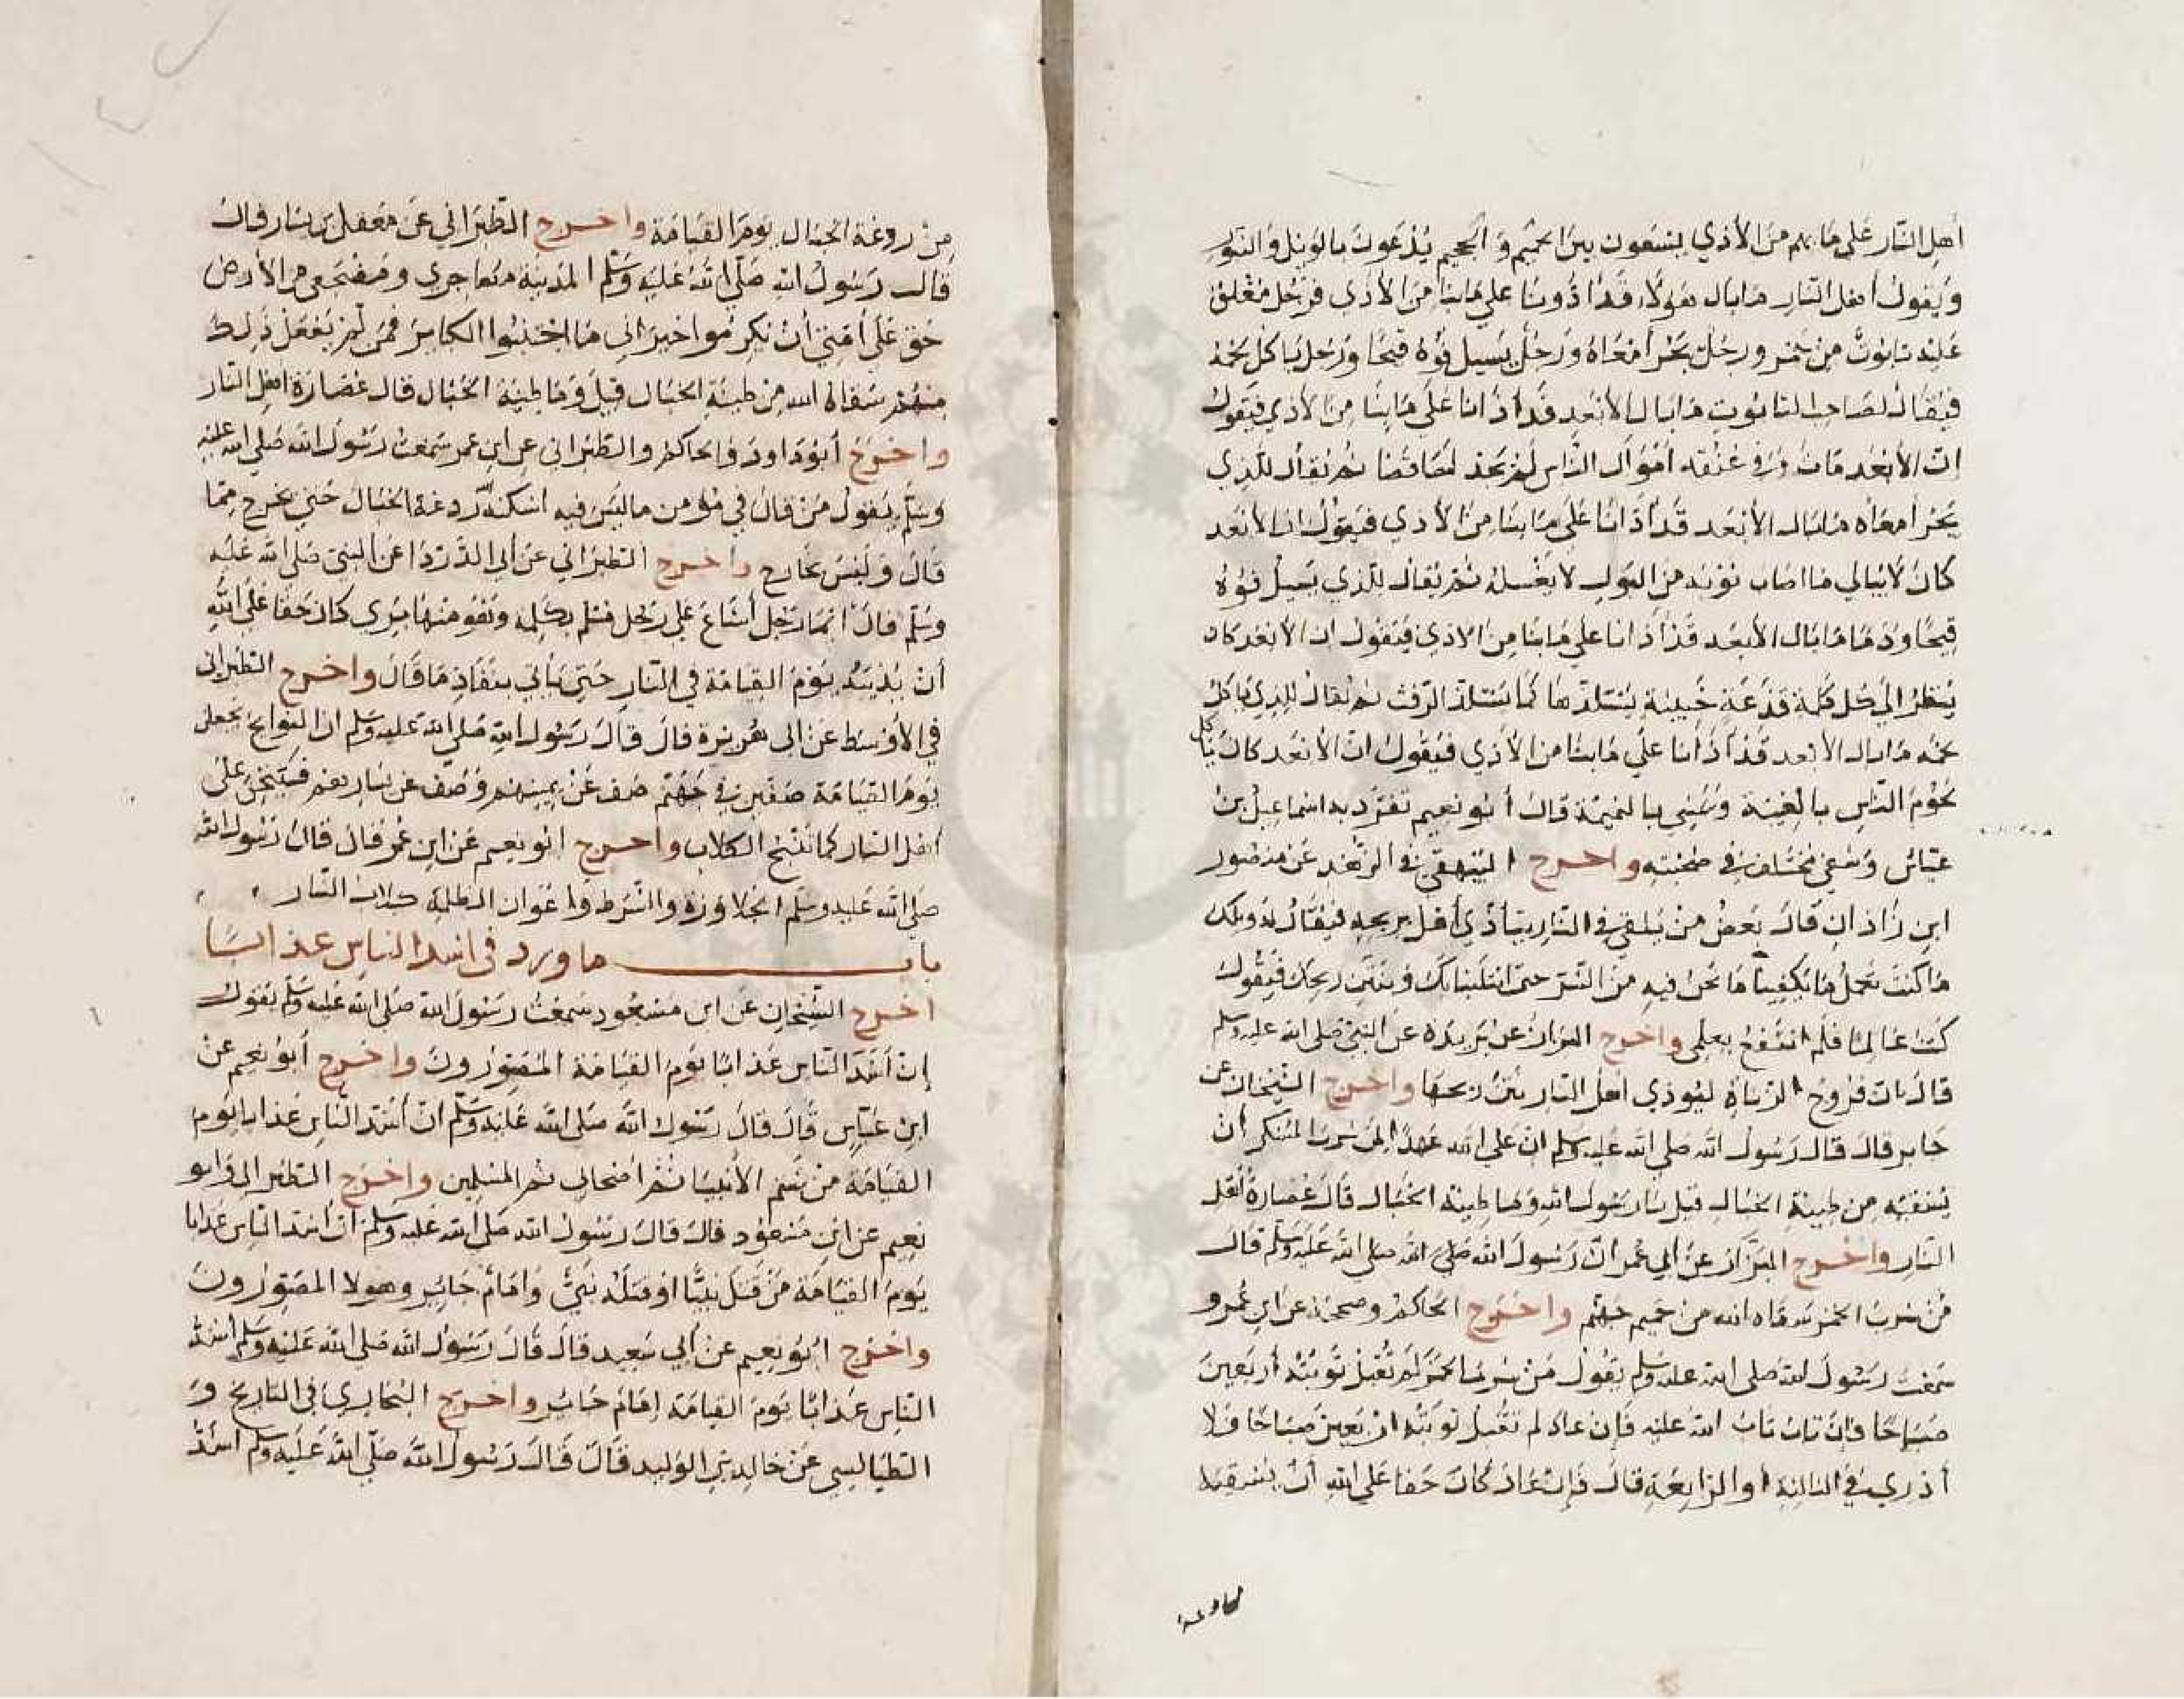 أهل النار على ما بهم من الأذي يسعون بين الحميم والجحيم يدعون بالويل والثبور
ويقول أهل النار ما بال هؤلاء قد أذونا على ما بنا من الأذى فرجل مغلق
عليه تابوت من جمر ورجل يجر أمعاه ورجل يسيل فوه قيحا ورجل ياكل لحمه
فيقال لصاحب التابوت ما بال الأبعد قد أذانا على ما بنا من الأذي فيقول
ان الأبعد مات وفي عنقه أموال الناس لم يجد لها قضا ثم يقال للذي
يجر أمعاه ما بال الأبعد قد أذانا على ما بنا من الأذي فيقول ان الأبعد
كان لا يبالي ما اصاب ثوبه من البول لا يغسله ثم يقال للذي يسيل فوه
قيحا ودما ما بال الأبعد قد أذانا على ما بنا من الاذي فيقول ان الأبعد كان
ينظر الي كل كلمة قذعة خبيثة يستلذها كما يستلذ الرفث ثم يقال للذي ياكل
لحمه ما بال الأبعد قد أذانا على ما بنا من الأذي فيقول ان الأبعد كان ياكل
لحوم الناس بالغيبة ويمشي بالنميمة قال أبو نعيم تفرد به اسماعيل بن
عياش وشفي مختلف في صحبته واخرج البيهقي في الزهد عن منصور
ابن زاذان قال بعض من يلقي في النار يتأذي أهل بريحه فيقال له ويلك
ما كنت تعمل ما يكفينا ما نحن فيه من الشر حتى ابتلينا بك وبنتن ريحك فيقول
كنت عالما فلم انتفع بعلمي واخرج البزار عن بريدة عن النبي صلى الله عليه وسلم
قال ان فروج الزناة ليوذي اهل النار نتن ريحها واخرج الشيخان عن
جابر قال قال رسول الله صلى الله عليه وسلم ان على الله عهدا لمن شرب المسكر أن
يسقيه من طينة الخبال قيل يا رسول الله وما طينة الخبال قال عصارة أهل
النار واخرج البزار عن أبي عمر ان رسول الله صلى الله صلى الله عليه وسلم قال
من شرب الخمر سقاه الله من حميم جهنم واخرج الحاكم وصححه عن ابن عمرو
سمعت رسول الله صلى الله عليه وسلم يقول من شرب الخمر لم تقبل توبته أربعين
صباحا فإن تاب تاب الله عليه فإن عاد لم تقبل توبته اربعين صباحا فلا
أدري في الثالثة أو الرابعة قال فإن عاد كان حقا على الله أن يسقيه
من ردغة الخبال يوم القيامة واخرج الطبراني عن معقل بن يسار قال
قال رسول الله صلى الله عليه وسلم المدينة مهاجري ومضجعي من الأرض
حق على أمتي أن يكرموا جيراني ما اجتنبوا الكبائر فمن لم يفعل ذلك
منهم سقاه الله من طينة الخبال قيل وما طينة الخبال قال عصارة اهل النار
واخرج أبو داود والحاكم والطبراني عن ابن عمر سمعت رسول الله صلى الله عليه
وسلم يقول من قال في مؤمن ما ليس فيه اسكنه ردغة الخبال حتى يخرج مما
قال وليس بخارج واخرج الطبراني عن أبي الدردا عن النبي صلى الله عليه
وسلم قال أيما رجل أشاع على رجل مسلم بكلمة وهو منها بري كان حقا على الله
أن يذيبه يوم القيامة في النار حتى يأتي بنفاذ ما قال واخرج الطبراني
في الأوسط عن ابي هريرة قال قال رسول الله صلى الله عليه وسلم ان النوايح يجعلن
يوم القيامة صفين في جهنم صف عن يمينهم وصف عن يسارهم فينبحن على
أهل النار كما تنبح الكلاب واخرج ابو نعيم عن ابن عمر قال قال رسول الله
صلى الله عليه وسلم الجلاوزة والشرط واعوان الظلمة كلاب النار
باب ما ورد في اشد الناس عذابا
اخرج الشيخان عن ابن مسعود سمعت رسول الله صلى الله عليه وسلم يقول
إن أشد الناس عذابا يوم القيامة المصورون واخرج أبو نعيم عن
ابن عباس قال قال رسول الله صلى الله عليه وسلم ان أشد الناس عذابا يوم
القيامة من شتم الأنبيا ثم أصحابي ثم المسلمين واخرج الطبراني وابو
نعيم عن ابن مسعود قال قال رسول الله صلى الله عليه وسلم ان اشد الناس عذابا
يوم القيامة من قتل نبيا او قتله نبي وامام جاير وهولا المصورون
واخرج ابو نعيم عن أبي سعيد قال قال رسول الله صلى الله عليه وسلم أشد
الناس عذابا يوم القيامة إمام جاير واخرج البخاري في التاريخ و
الطيالسي عن خالد بن الوليد قال قال رسول الله صلى الله عليه وسلم اشد